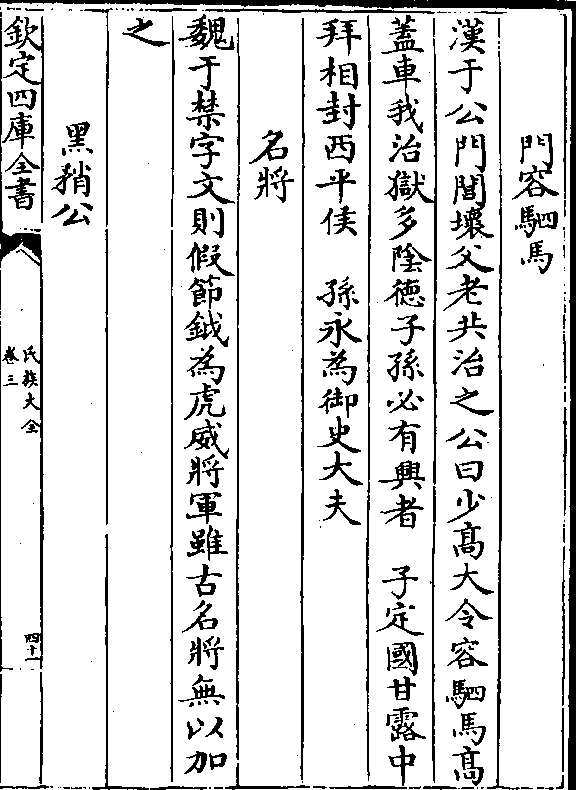 門容駟馬
漢于公門閭壞父老共治之公曰少髙大令容駟馬髙
蓋車我治獄多陰德子孫必有興者　子定國甘露中
拜相封西平侯　孫永為御史大夫
名將
魏于禁字文則假節鉞為虎威將軍雖古名將無以加
之
黑矟公
欽定四庫全書
氏族大全
卷三
四十一